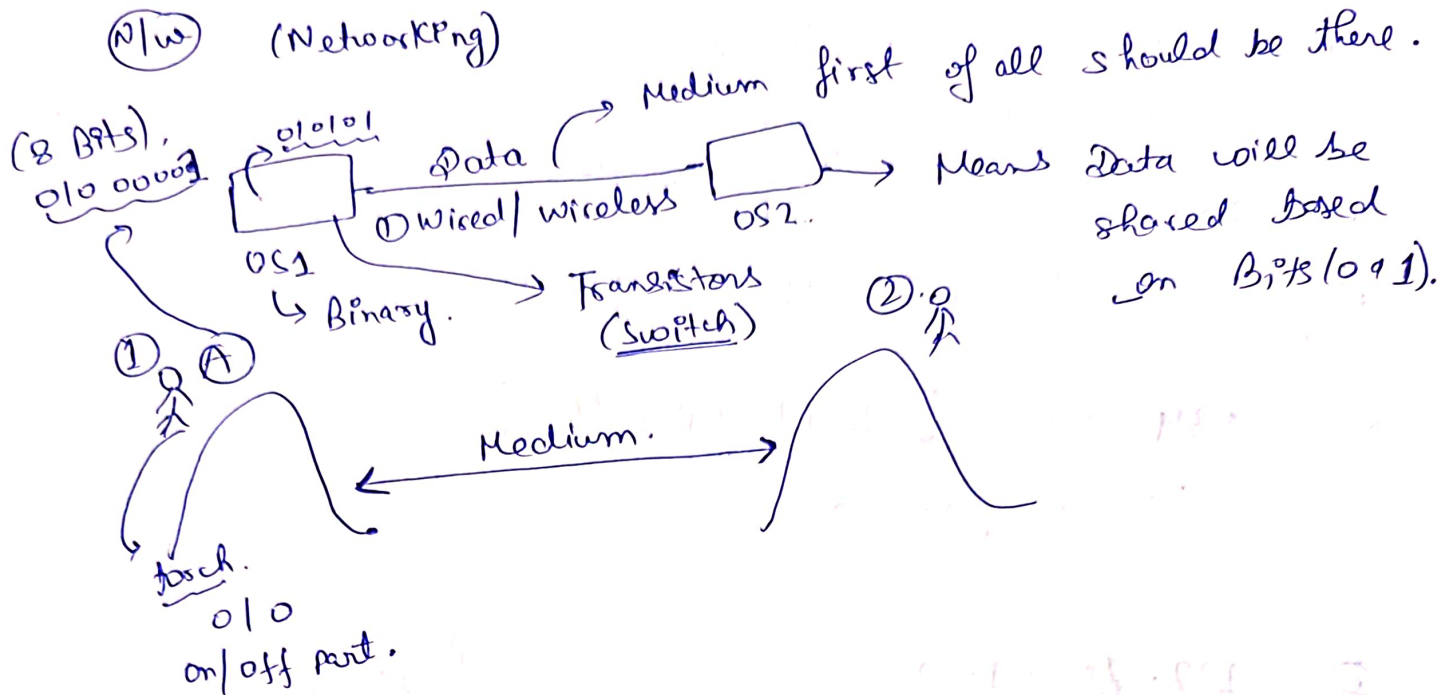 N/w (Networking)
Medium first of all should be there.
(8 Bits).
010 00001
010101
Data
① Wired/ wireless
OS1
↳ Binary.
OS2.
→ Means Data will be
shared based
on Bits (0 & 1).
Transistors
(Switch)
① A
②
Medium.
torch.
010
on/off part.